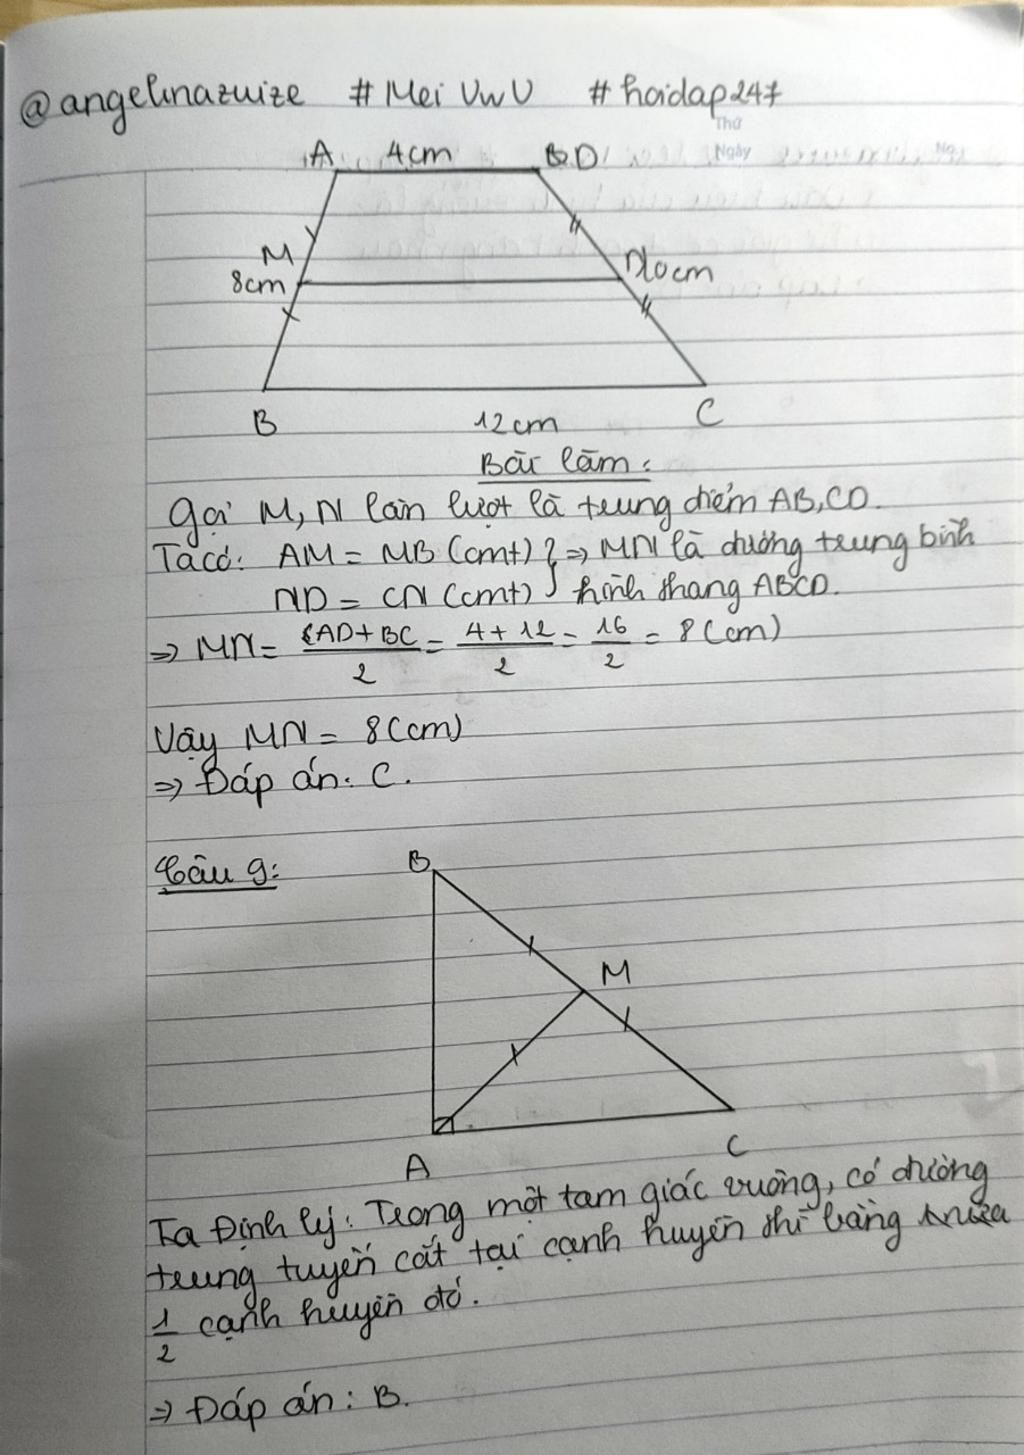 @angelinazuize #Mei UwU #hoidap247
Thứ
Ngày
A 4cm D
M
8cm
N 10cm
B 12cm C
Bài làm:
Gọi M, N lần lượt là trung điểm AB, CD.
Ta có: AM = MB (cmt) } => MN là đường trung bình
ND = CN (cmt) hình thang ABCD.
=> MN = AD + BC / 2 = 4 + 12 / 2 = 16 / 2 = 8 (cm)
Vậy MN = 8 (cm)
=> Đáp án: C.
Câu 9:
B
M
A C
Ta Định lý: Trong một tam giác vuông, có đường
trung tuyến cắt tại cạnh huyền thì bằng
1/2 cạnh huyền đó.
=> Đáp án: B.